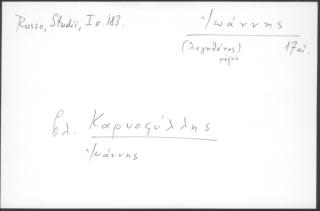 Russo, Studii, I σ. 183.
Ἰωάννης
(λογοθέτης) 17 αἰ.
μέγας
βλ. Καρυοφύλλης
Ἰωάννης